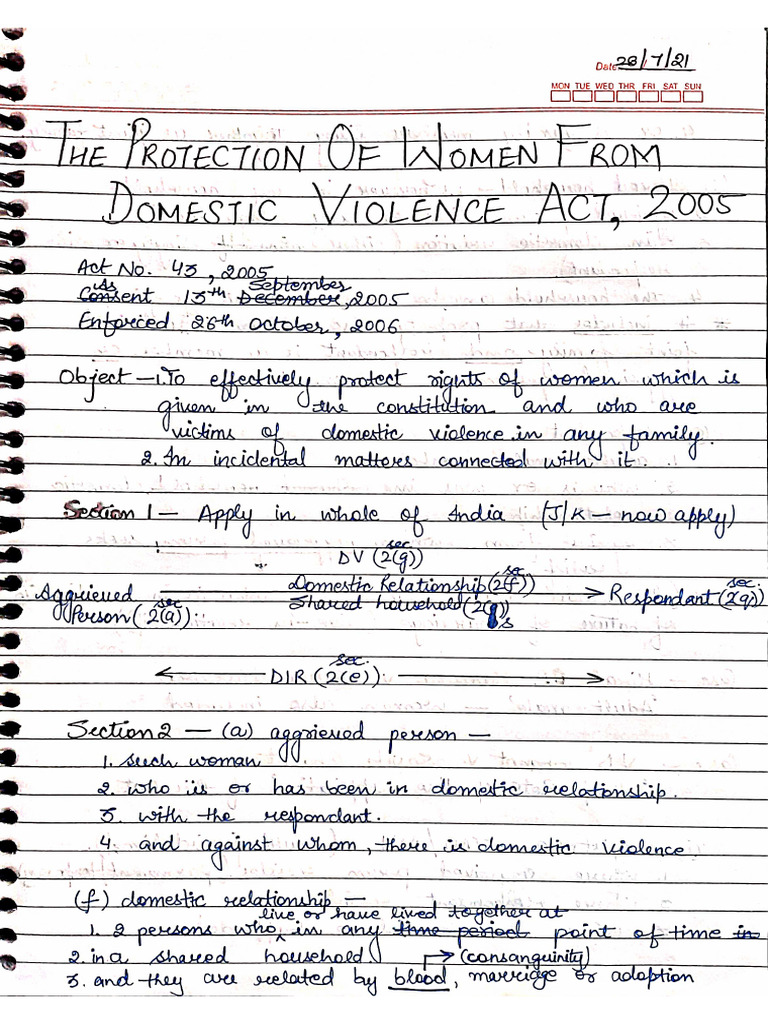 Date 28/7/21
MON TUE WED THR FRI SAT SUN
THE PROTECTION OF WOMEN FROM
DOMESTIC VIOLENCE ACT, 2005
Act No. 43, 2005
As September
Consent 13th December, 2005
Enforced 26th October, 2006
Object – 1. To effectively protect rights of women which is
given in the constitution and who are
victims of domestic violence in any family.
2. In incidental matters connected with it.
Section 1 – Apply in whole of India (J/K – now apply)
sec.
DV (2(g))
sec
Domestic Relationship (2(f))
Aggrieved Shared household (2(s)) Respondant (2q))
sec sec.
Person (2(a))
sec.
DIR (2(e))
Section 2 – (a) aggrieved person –
1. such woman
2. who is or has been in domestic relationship.
3. with the respondant.
4. and against whom, there is domestic violence
(f) domestic relationship –
live or have lived together at
1. 2 persons who, in any time period point of time in
2. in a shared household (consanguinity)
3. and they are related by blood, marriage or adoption